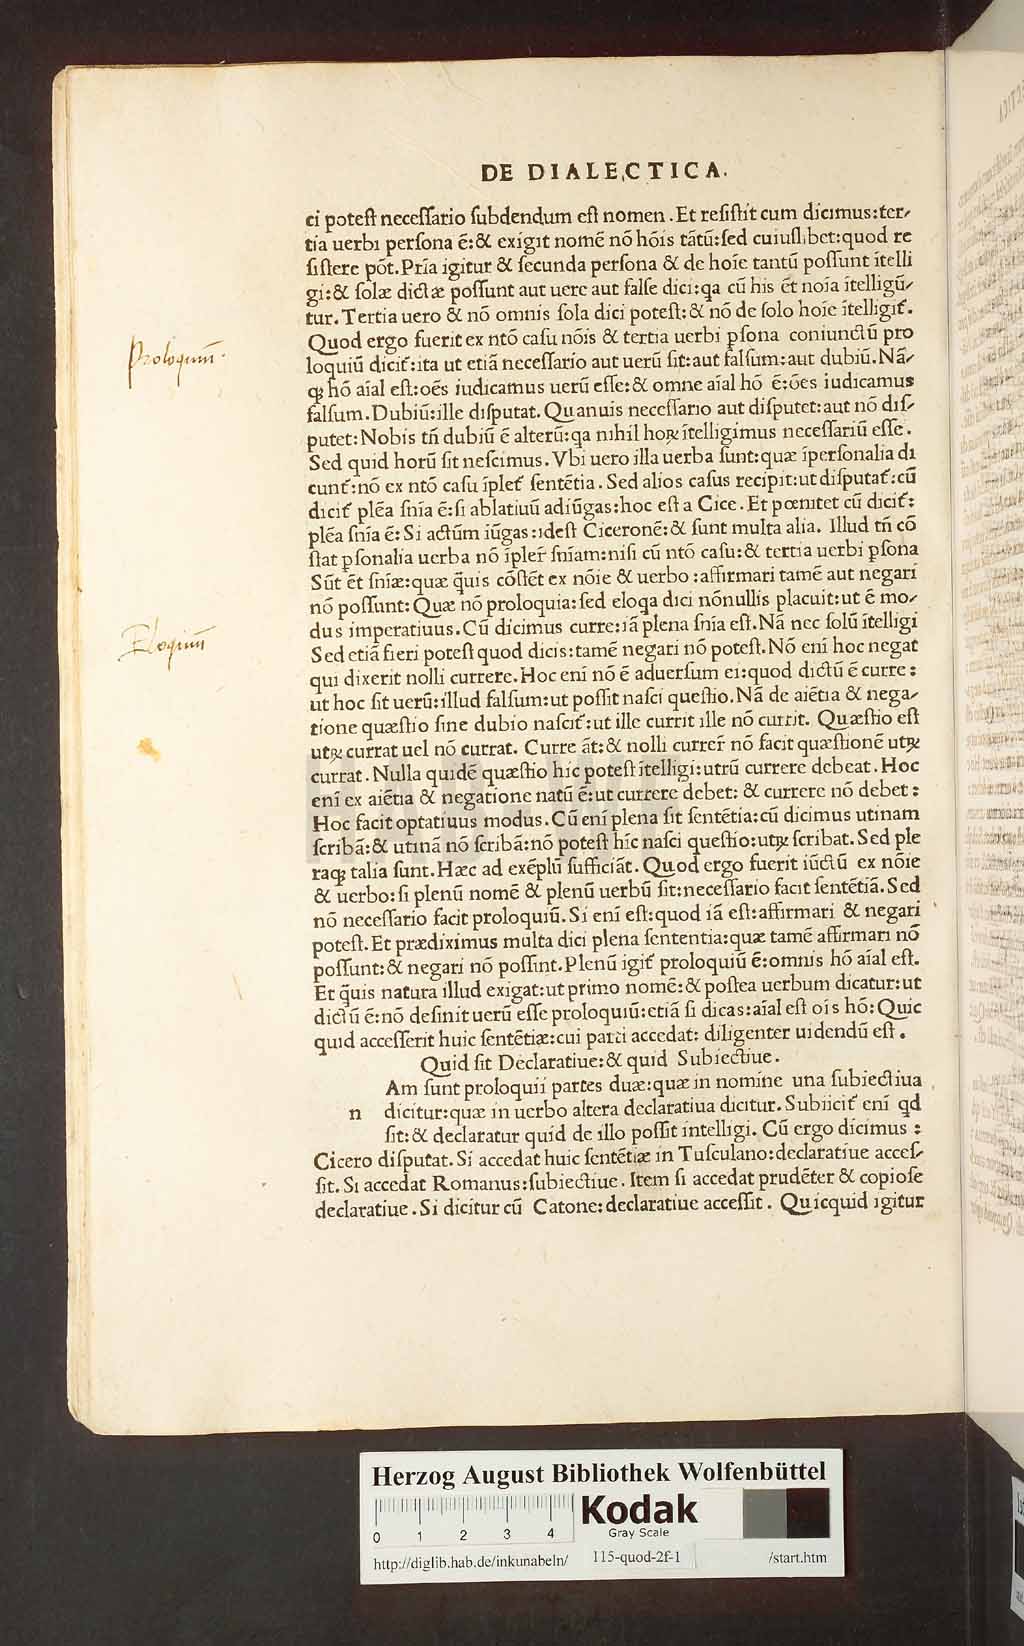 DE DIALECTICA.
ci potest necessario subdendum est nomen. Et resistit cum dicimus: ter-
tia uerbi persona ē: & exigit nomē nō hōis tātū: sed cuiuslibet: quod re
sistere pōt. Prīa igitur & secunda persona & de hoīe tantū possunt ītelli
gi: & solæ dictæ possunt aut uere aut false dici: qa cū his ēt noīa ītelligū-
tur. Tertia uero & nō omnis sola dici potest: & nō de solo hoīe ītelligit̄.
Quod ergo fuerit ex ntō casu nōis & tertia uerbi psona coniunctū pro
loquiū dicit̄: ita ut etiā necessario aut uerū sit: aut falsum: aut dubiū. Nā-
Proloquiū.
ꝙ hō aīal est: oēs iudicamus uerū esse: & omne aīal hō ē: ōes iudicamus
falsum. Dubiū: ille disputat. Quanuis necessario aut disputet: aut nō dis-
putet: Nobis tn̄ dubiū ē alterū: qa nihil hoꝝ ītelligimus necessariū esse.
Sed quid horū sit nescimus. Vbi uero illa uerba sunt: quæ īpersonalia di
cunt̄: nō ex ntō casu īplet̄ sentētia. Sed alios casus recipit: ut disputat̄: cū
dicit̄ plēa snīa ē: si ablatiuū adiūgas: hoc est a Cice. Et pœnitet cū dicit̄:
plēa snīa ē: Si actūm iūgas: idest Ciceronē: & sunt multa alia. Illud tn̄ cō
stat psonalia uerba nō īpler̄ snīam: nisi cū ntō casu: & tertia uerbi psona
Sūt ēt snīæ: quæ q̄uis cōstēt ex nōie & uerbo: affirmari tamē aut negari
nō possunt: Quæ nō proloquia: sed eloqa dici nōnullis placuit: ut ē mo-
dus imperatiuus. Cū dicimus curre: iā plena snīa est. Nā nec solū ītelligi
Eloqiuū
Sed etiā fieri potest quod dicis: tamē negari nō potest. Nō enī hoc negat
qui dixerit nolli currere. Hoc enī nō ē aduersum ei: quod dictū ē curre:
ut hoc sit uerū: illud falsum: ut possit nasci questio. Nā de aiētia & nega-
tione quæstio sine dubio nascit̄: ut ille currit ille nō currit. Quæstio est
utꝝ currat uel nō currat. Curre āt: & nolli currer̄ nō facit quæstionē utꝝ
currat. Nulla quidē quæstio hic potest ītelligi: utrū currere debeat. Hoc
enī ex aiētia & negatione natū ē: ut currere debet: & currere nō debet:
Hoc facit optatiuus modus. Cū enī plena sit sentētia: cū dicimus utinam
scribā: & utinā nō scribā: nō potest hīc nasci questio: utꝝ scribat. Sed ple
raꝙ talia sunt. Hæc ad exēplū sufficiāt. Quod ergo fuerit iūctū ex nōie
& uerbo: si plenū nomē & plenū uerbū sit: necessario facit sentētiā. Sed
nō necessario facit proloquiū. Si enī est: quod iā est: affirmari & negari
potest. Et prædiximus multa dici plena sententia: quæ tamē affirmari nō
possunt: & negari nō possint. Plenū igit̄ proloquiū ē: omnis hō aīal est.
Et q̄uis natura illud exigat: ut primo nomē: & postea uerbum dicatur: ut
dictū ē: nō desinit uerū esse proloquiū: etiā si dicas: aīal est oīs hō: Quic
quid accesserit huic sentētiæ: cui parti accedat: diligenter uidendū est.
Quid sit Declaratiue: & quid Subiectiue.
Am sunt proloquii partes duæ: quæ in nomine una subiectiua
n dicitur: quæ in uerbo altera declaratiua dicitur. Subiicit̄ enī qd
sit: & declaratur quid de illo possit intelligi. Cū ergo dicimus:
Cicero disputat. Si accedat huic sentētiæ in Tusculano: declaratiue acces-
sit. Si accedat Romanus: subiectiue. Item si accedat prudēter & copiose
declaratiue. Si dicitur cū Catone: declaratiue accessit. Quicquid igitur
HAB WF
Herzog August Bibliothek Wolfenbüttel
0 1 2 3 4
Kodak
Gray Scale
http://diglib.hab.de/inkunabeln/ 115-quod-2f-1 /start.htm